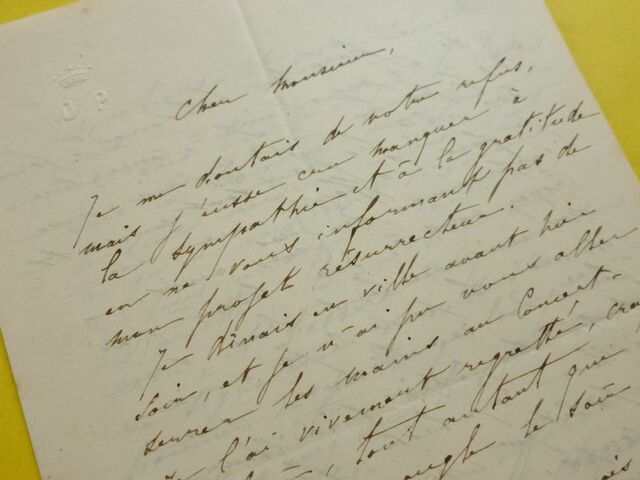 O P
Cher Monsieur,
Je me doutais de votre refus,
mais j'eusse cru manquer à
la sympathie et à la gratitude
en ne vous informant pas de
mon projet résurrecteur.
Je dînais en ville avant hier
soir, et je n'ai pu vous aller
serrer les mains au Concert-
Je l'ai vivement regretté,
tout autant que
le soir